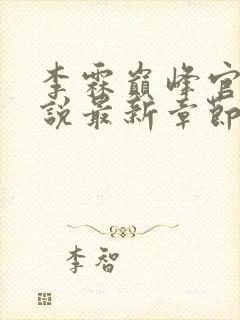 李霖巅峰官
說最新章節
李智